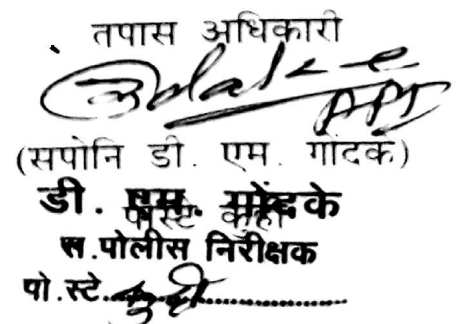 तपास अधिकारी
API
(सपोनि डी. एम. गोंदके)
डी. एम. गोंदके
स.पोलीस निरीक्षक
पो.स्टे.